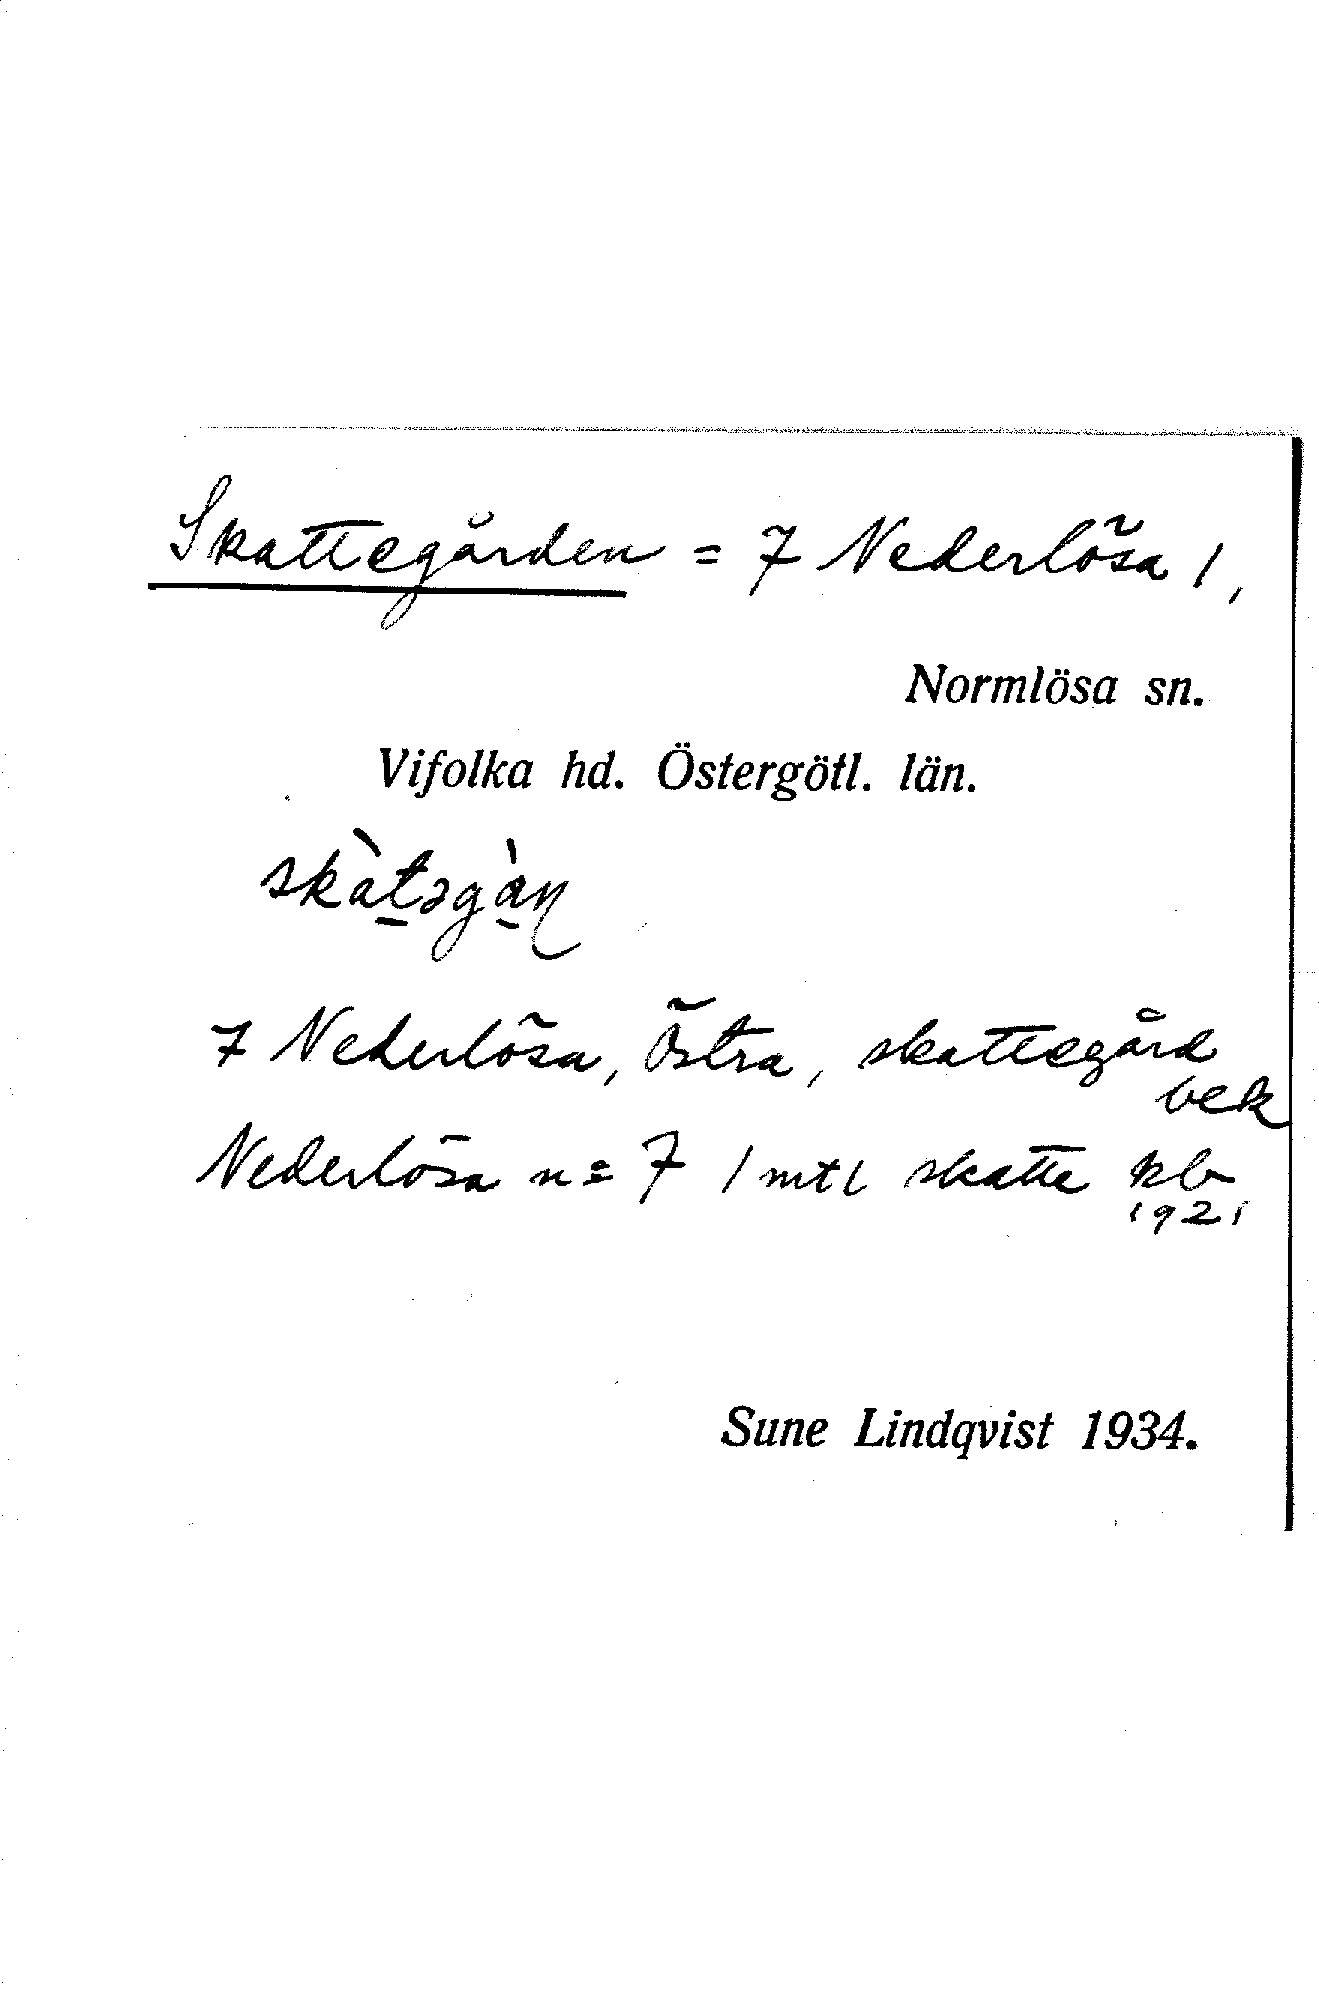 Skattegården = 7 Nederlösa 1,
Normlösa sn.
Vifolka hd. Östergötl. län.
skàt̠əgà̠ɳ
7 Nederlösa, Östra, skattegård
bek
Nederlösa nº 7 1 mtl skatte kb
1921
Sune Lindqvist 1934.